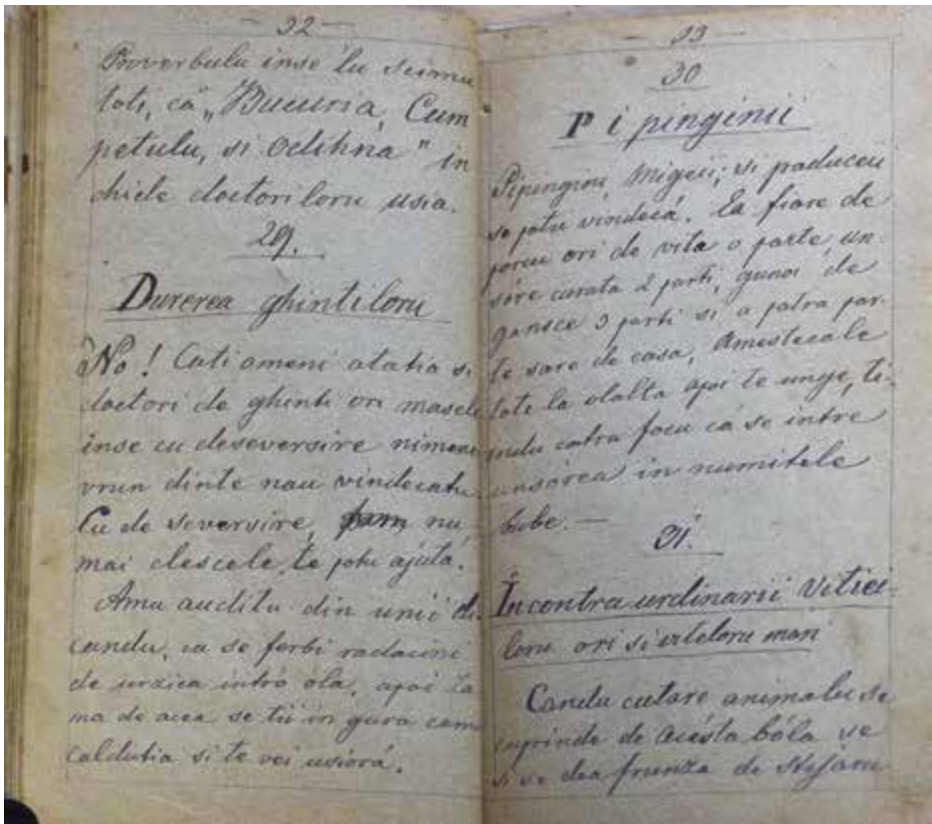 — 32 —
Proverbulu inse lu scimu
toti, că „Bucuria, Cum
petulu, si odihna" in
chide doctoriloru usia.
29.
Durerea ghintiloru
No! Cati ameni atatia si
doctori de ghinti ori masele
inse cu deseversire nimenea
vrun dinte nau vindecatu.
Cu de seversire, nu
mai clescele, te potu ajuta.
Amu auditu din unii di-
candu, ca se ferbi radacini
de urzica intro ola, apoi za
ma de acea se tii in gura cam
caldutia si te vei usiorá.
— 33 —
30
Pipinginii
Pipingini, migeii, si paduceii
se potu vindecá. Ea fiare de
porcu ori de vita o parte, un-
sire curata 2 parti, gunoi de
gansce 3 parti si a patra par-
te sare de casa, Amestecale
tote la olalta apoi te unge, ti-
indu catra focu cá se intre
unsórea in numitele
bube. —
31.
Incontra urdinarii Vitiei-
loru ori si viteloru mari
Candu cutare animalu se
cuprinde de acésta bóla se
i se dea frunza de Stejaru